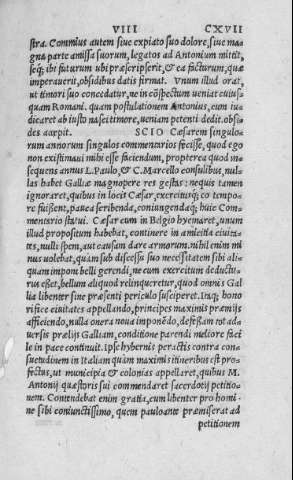 VIII CXVII
stra. Commius autem siue expiato suo dolore, siue ma
gna parte amissa suorum, legatos ad Antonium mittit,
seq; ibi futurum ubi præscripserit, & ea facturum, quæ
imperauerit, obsidibus datis firmat. Vnum illud orat,
ut timori suo concedatur, ne in cõspectum ueniat cuius
quam Romani. quam postulationem Antonius, cum iu
dicaret ab iusto nasci timore, ueniam petenti dedit. obsi
des accipit. SCIO Cæsarem singulo
rum annorum singulos commentarios fecisse, quod ego
non existimaui mihi esse faciendum, propterea quod in
sequens annus L. Paulo, & C. Marcello consulibus, nul
las habet Galliæ magnopere res gestas: nequis tamen
ignoraret, quibus in locis Cæsar, exercitusq; eo tempo
re fuissent, pauca scribenda, coniungendaq; huic Com
mentario statui. Cæsar cum in Belgio hyemaret, unum
illud propositum habebat, continere in amicitia ciuita
tes, nulli spem, aut causam dare armorum. nihil enim mi
nus uolebat, quàm sub discessu suo necessitatem sibi ali
quam imponi belli gerendi, ne cum exercitum deductu-
rus esset, bellum aliquod relinqueretur, quod omnis Gal
lia libenter sine præsenti periculo susciperet. Itaq; hono
rifice ciuitates appellando, principes maximis præmijs
afficiendo, nulla onera noua imponẽdo, defessam tot ad
uersis prælijs Galliam, conditione parendi meliore facì
le in pace continuit. Ipse hybernis peractis contra con
suetudinem in Italiam quàm maximis itineribus est pro
fectus, ut municipia & colonias appellaret, quibus M.
Antonij quæstoris sui commendaret sacerdotij petitio-
nem. Contendebat enim gratia, cum libenter pro homi
ne sibi coniunctissimo, quem pauloante præmiserat ad
petitionem